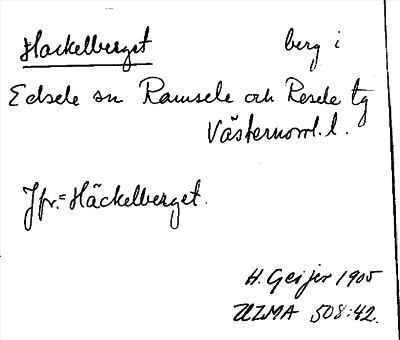 Hackelberget berg i
Edsele sn Ramsele och Resele tg
Västernorrl. l.
Jfr.= Häckelberget.
H. Geijer 1905
ULMA 508:42.